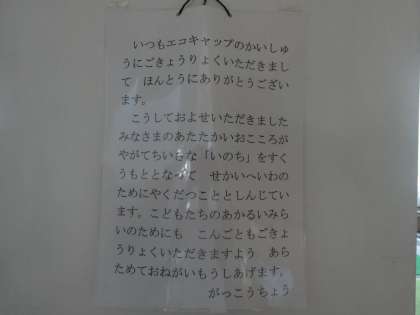 いつもエコキャップのかいしゅ
うにごきょうりょくいただきまし
て　ほんとうにありがとうござい
ます。
こうしておよせいただきました
みなさまのあたたかいおこころが
やがてちいさな「いのち」をすく
うもととなって　せかいへいわの
ためにやくだつこととしんじてい
ます。こどもたちのあかるいみら
いのためにも　こんごともごきょ
うりょくいただきますよう　あら
ためておねがいもうしあげます。
がっこうちょう